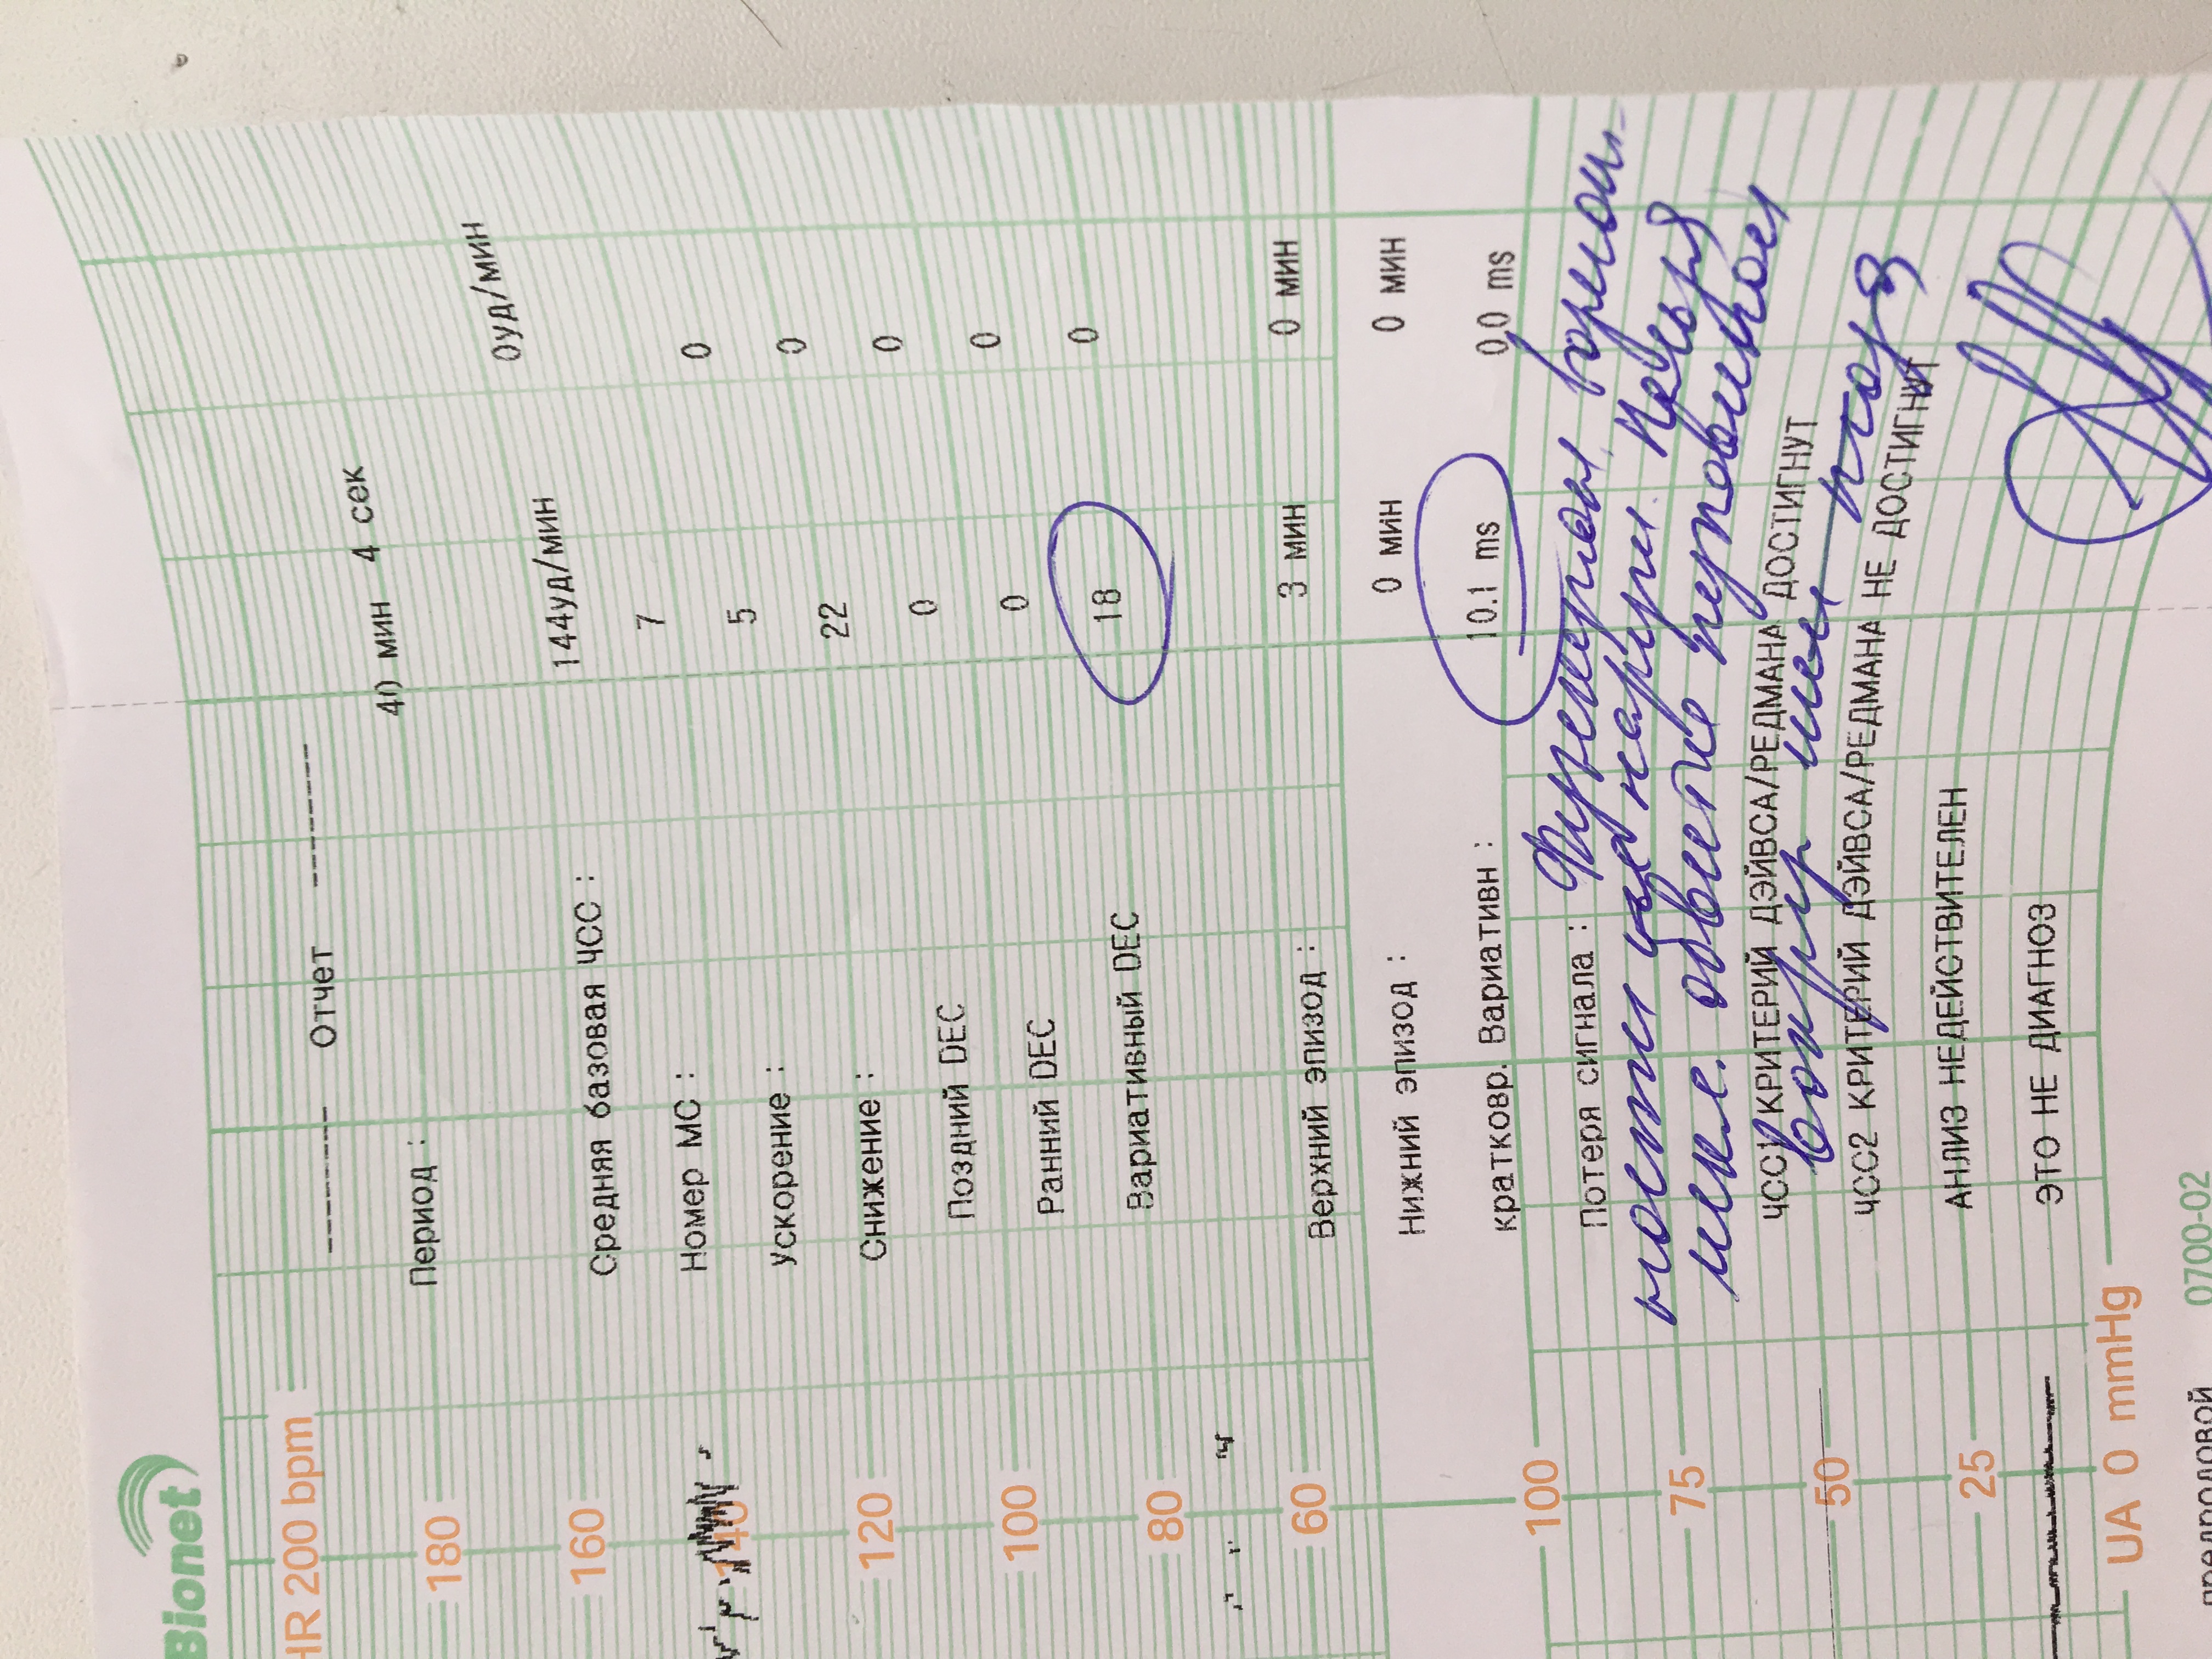 Bionet
HR 200 bpm
180
160
140
120
100
80
60
100
75
50
25
UA 0 mmHg
0700-02
------- Отчет ---------
Период : 40 мин 4 сек
0уд/мин
Средняя базовая ЧСС : 144уд/мин
Номер МС : 7 0
Ускорение : 5 0
Снижение : 22 0
Поздний DEC 0 0
Ранний DEC 0 0
Вариативный DEC 18 0
Верхний эпизод : 3 мин 0 мин
Нижний эпизод : 0 мин 0 мин
кратковр. Вариативн : 10.1 ms 0.0 ms
Потеря сигнала :
ЧСС1 КРИТЕРИЙ ДЭЙВСА/РЕДМАНА ДОСТИГНУТ
ЧСС2 КРИТЕРИЙ ДЭЙВСА/РЕДМАНА НЕ ДОСТИГНУТ
АНЛИЗ НЕДЕЙСТВИТЕЛЕН
ЭТО НЕ ДИАГНОЗ
обвитие пуповиной
вокруг шеи